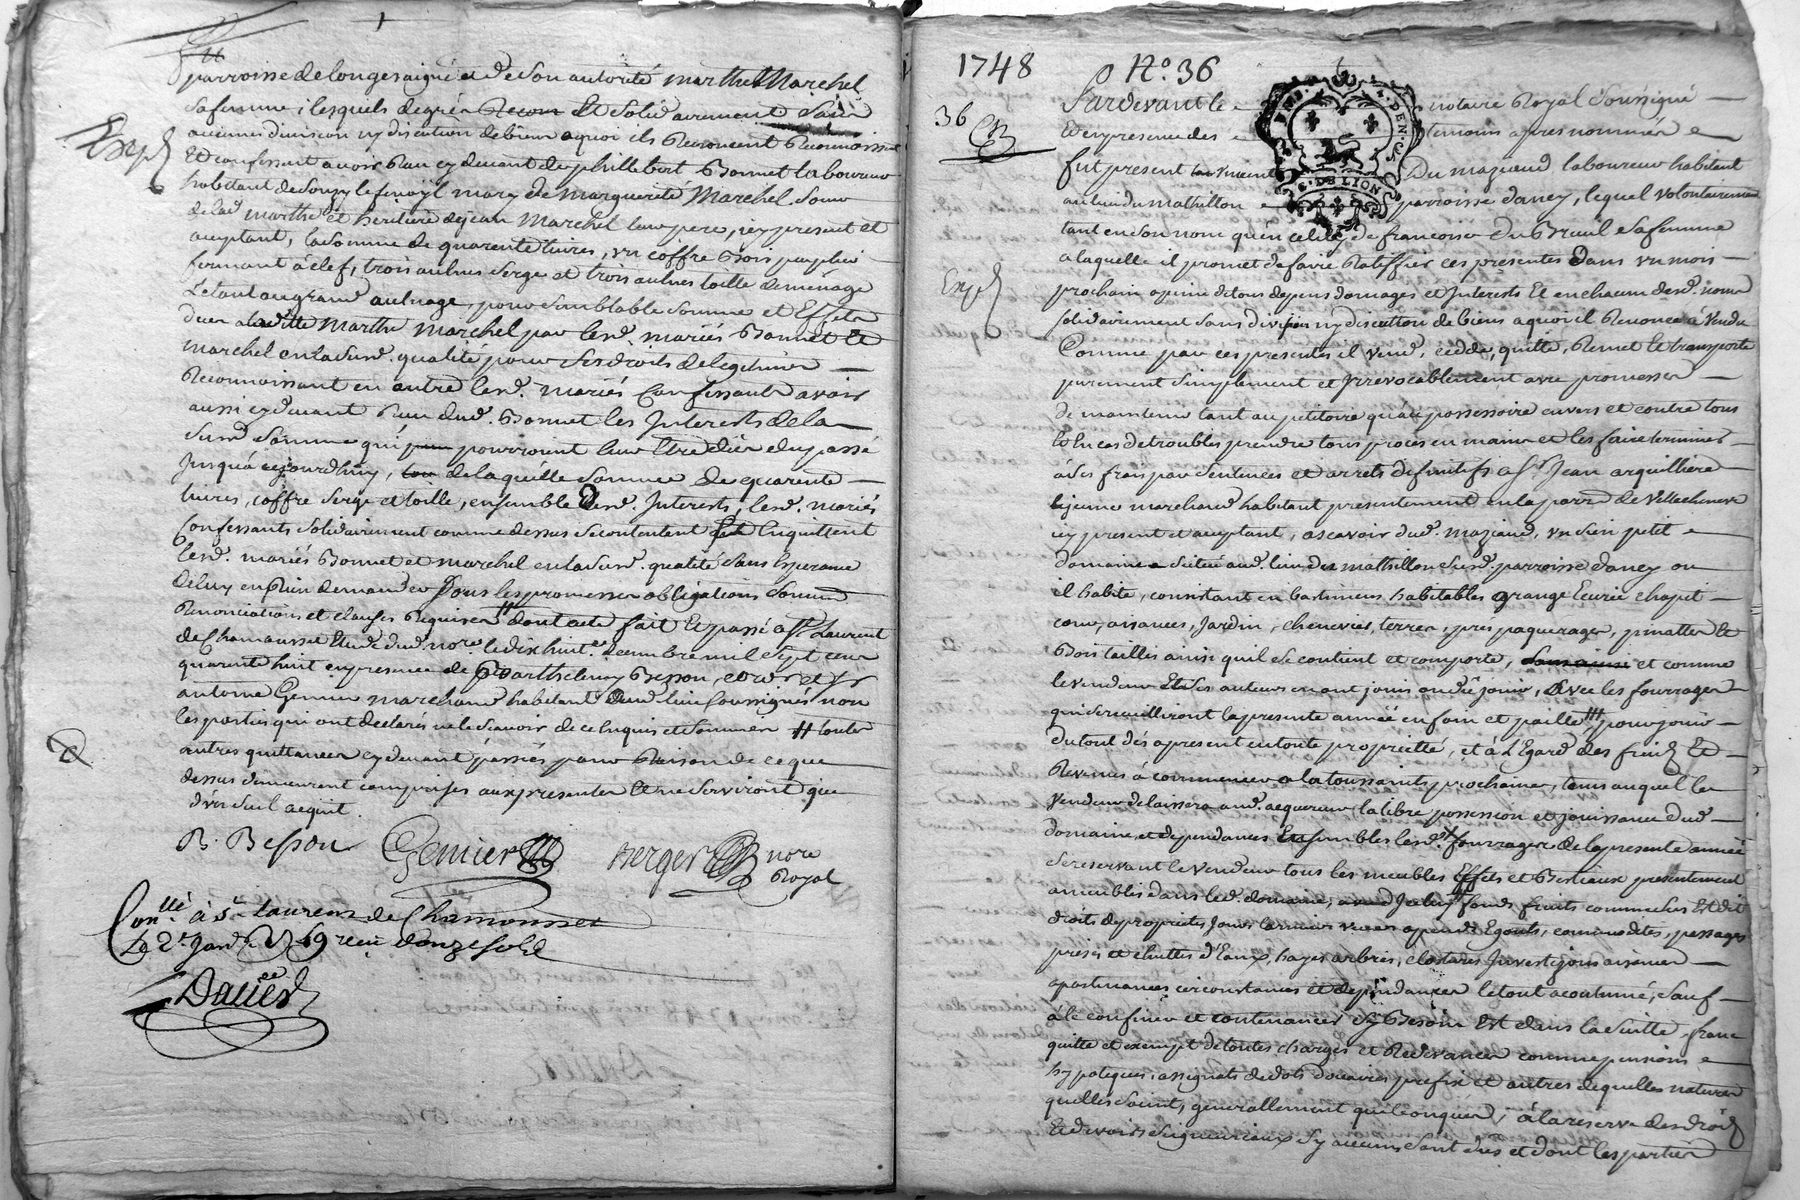 parroisse de longesaigne et de son autorité marthe Marchel
sa femme, lesquels de gré a Recour Et Solidairement Sans
aucune division ny discution de biens a quoi ils Renoncent Reconnoissent
Et confessent avoir Reçu cy devant de phillebert Bonnet laboureur
habitant de Souzy mary de marguerite Marchel Soeur
de lad marthe et heritiere de jean Marchel leur pere, icy present et
acceptant, la somme de quarente livres, un coffre Bois
fermant à clef, trois aulnes Serge et trois aulnes toille de ménage
Le tout au grand aulnage, pour Semblable Somme et Effets
deus a laditte Marthe Marchel par lesd. mariés Bonnet Et
Marchel en lad qualité pour Ses droits de legitime
Reconnoissant en outre lesd. mariés Confessants avoir
aussi cy devant Reçu dud. Bonnet les Interests de la
Susd Somme qui pourroient leur Etre dûs du passé
Jusqu'à aujourdhuy, de laquelle Somme de quarente
livres, coffre Serge et toille, ensemble desd. Interests, lesd. mariés
Confessants Solidairement comme dessus Se contentent Et En quittent
lesd. mariés Bonnet et Marchel en lad Susd. qualité Sans Esperance
de leur en Rien demander Sous les promesses obligations Soumis
Renonciations et clauses Requises # dont acte fait Et passé a St Laurent
de Chamousset Etude dud. nore le dix huit e. decembre mil Sept cent
quarente huit en presence de Barthelemy Besson,
antoine Genier marchand habitant dud lieu Soussignés non
les parties qui ont declarés ne le Scavoir de ce Enquis et Sommés # toutes
autres quittances cy devant passées pour Raison de ce que
dessus demeurent comprises aux presentes Et ne Serviront que
d'un Seul acquit.
B. Besson Genier Berger nore
Royal
Conllé à St Laurens de Chamousset
Le 2e Janv. 1749 reçu douze Sols
Dacier
1748 No. 36
36
Pardevant le notaire Royal Soussigné
Et en presence des temoins apres nommés
fut present Du maziaud laboureur habitant
au lieu du mathillon parroisse dancy, lequel volontairement
tant en Son nom qu'en celuy de francoise Du Breuil Sa femme
a laquelle il promet de faire Ratiffier ces presentes Dans un mois
prochain a peine de tous depens domages et Interests Et en chacun desd. noms
Solidairement Sans division ny discution de biens a quoi il Renonce à Vendu
Comme par ces presentes il vend, cedde, quitte, Remet Et transporte
purement Simplement et Irrevocablement avec promesses
de maintenir tant au petitoire qu'au possessoire envers et contre tous
Et En cas de troubles prendre tous proces en main et les faire terminer
à Ses frais par Sentences et arrets definitifs a Sr Jean arquilliere
le jeune marchand habitant presentement en la parr. de Villechenève
icy present et acceptant, a scavoir dud. maziaud, un Sien petit
domaine Situé aud. lieu du mathillon Susd. parroisse dancy ou
il habite, consistant en bastimens habitables grange Ecurie chapit
cour, aisances, Jardin, chenevier, terres, prés paquerages, pinattes Et
Bois taillis ainsi qu'il Se contient et comporte, et comme
le vendeur Et Ses auteurs en ont jouis ou dû jouir, Avec les fourrages
qui Se cueilliront la presente année en foin et paille, pour jouir
du tout dés apresent en toute proprietté, et à L'Egard des fruits Et
Revenus à commencer a la toussaints prochaine, tems auquel le
Vendeur delaissera aud. acquereur la libre possession et jouissance dud
domaine et dependances Ensemble lesd. fourrages de la presente année
Se reservant le vendeur tous les meubles Effets et Bestiaux presentement
ameublés dans led. domaine, fonds fruits comme Sus Est dit
droits de proprietés Jours larmiers vues Egouts, commodités, passages
prises et chuttes d'Eaux, hayes arbres, clostures Investizons aisances
apartenances circonstances et dependances le tout acoutumé, Sauf
à le confiner et contenancer Sy Besoin Est dans la Suitte, franc
quitte et exempt de toutes charges et Redevances comme pensions
hypoteques, assignats de dots doüaires prefix et autres de quelles natures
quelles Soint, generallement quelconques, à la reserve des droits
Et devoirs Seigneuriaux Sy aucuns Sont dûs et dont les parties